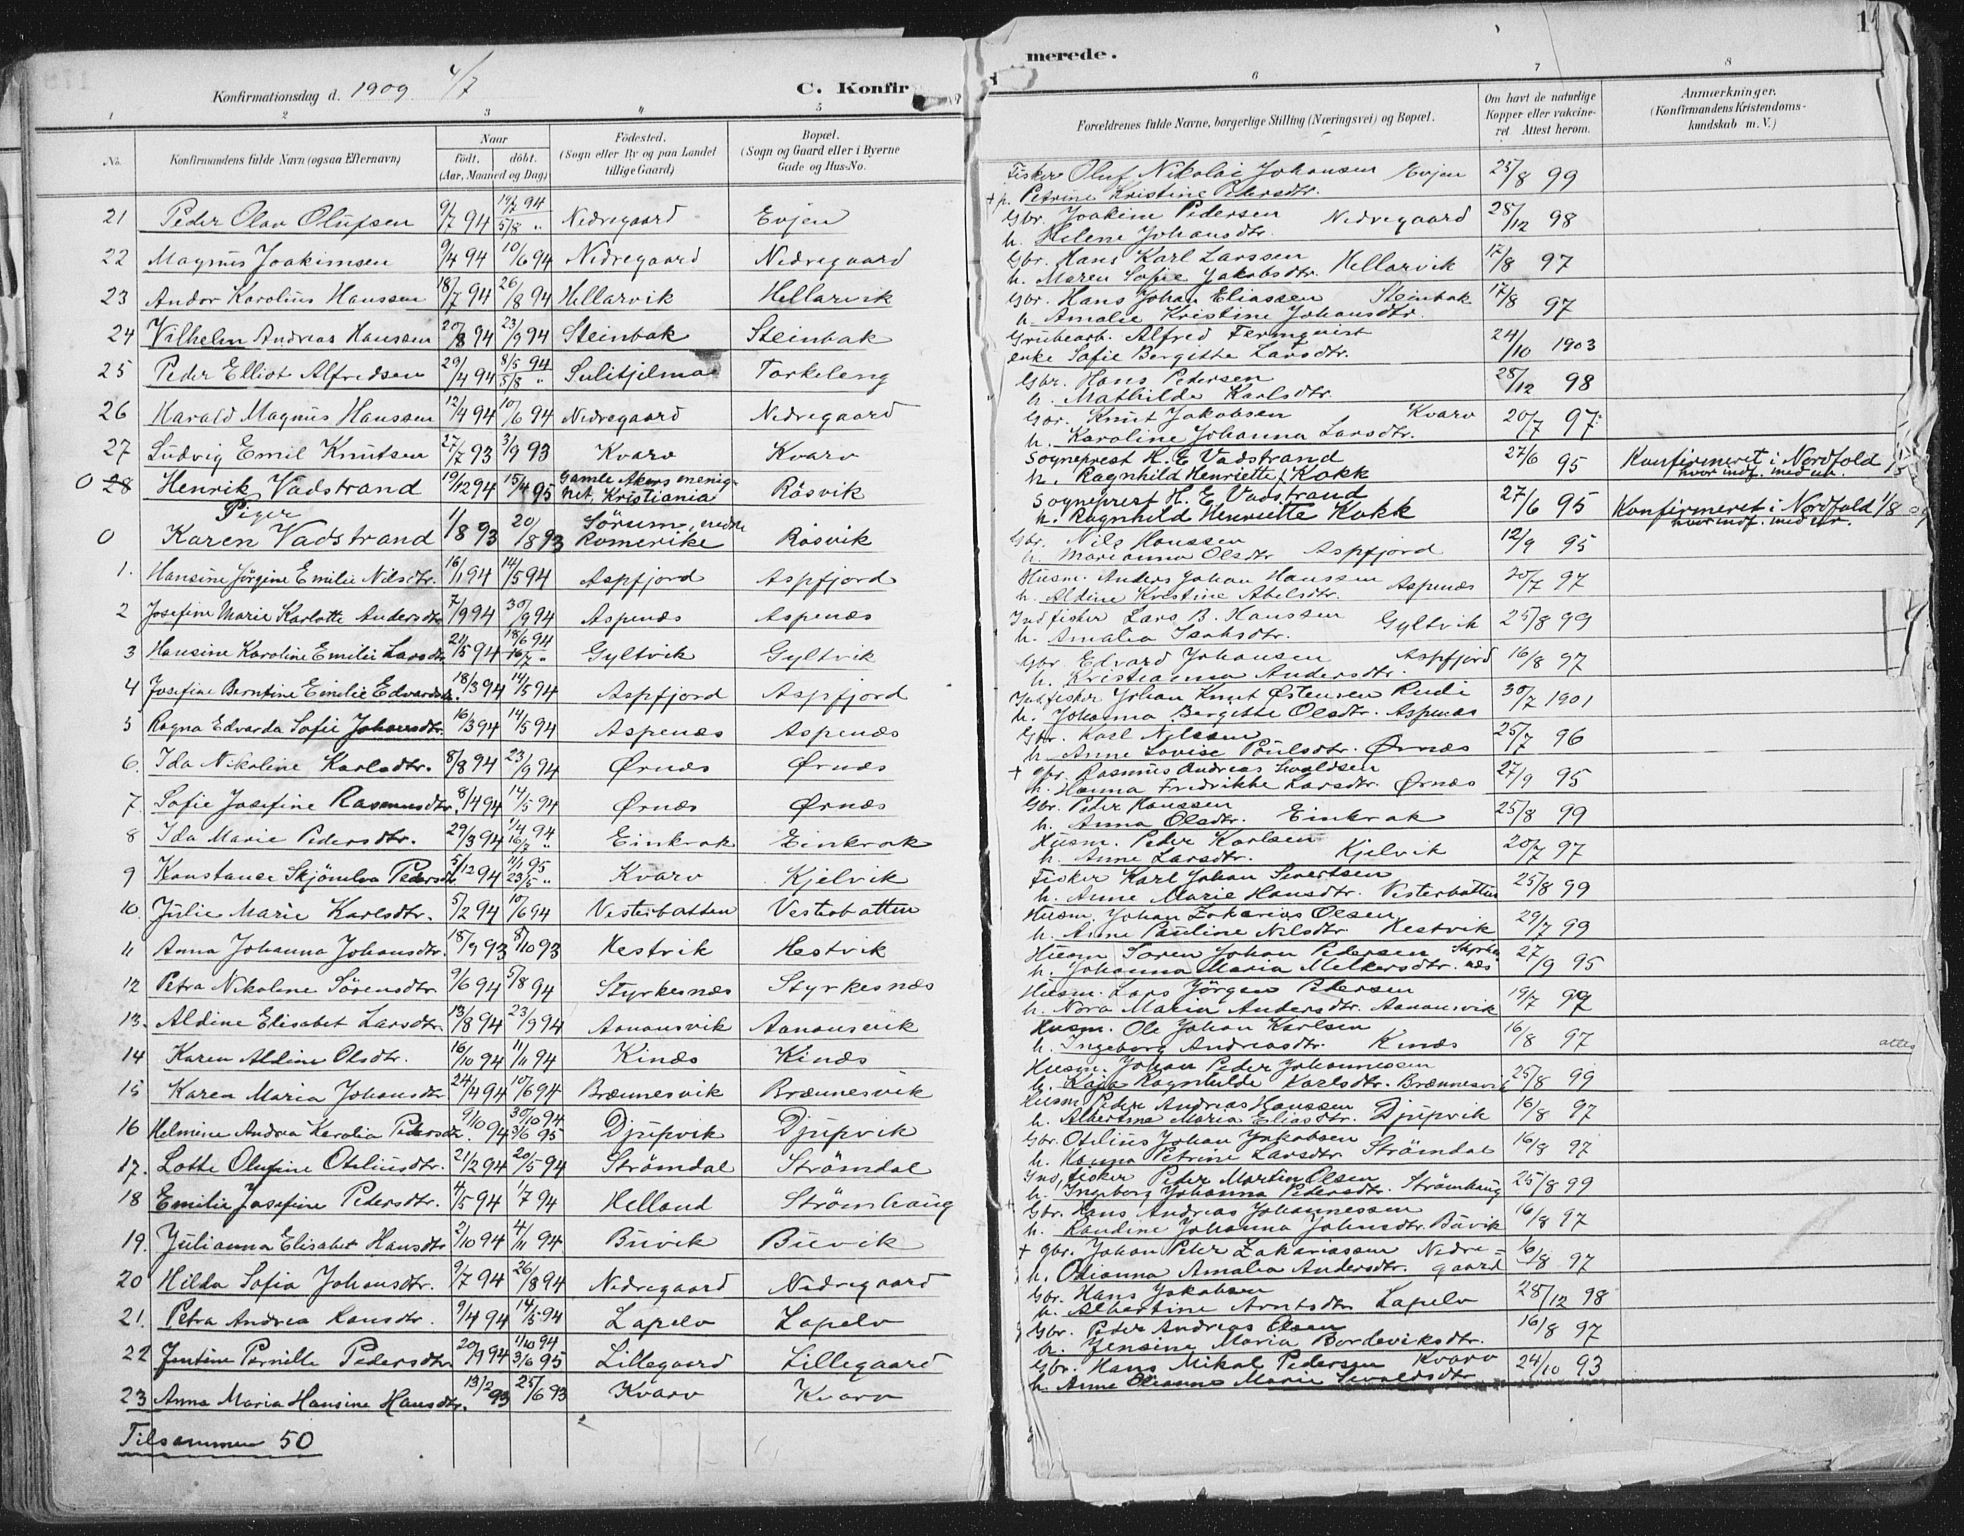 Konfirmationsdag d. 1909 4/7
C. Konfir
merede.
1 2 3 4 5
6 7 8
No.
Konfirmandens fulde Navn (ogsaa Efternavn)
Naar
født. døbt.
(Aar, Maaned og Dag)
Fødested.
(Sogn eller By og paa Landet
tillige Gaard)
Bopæl.
(Sogn og Gaard eller i Byerne
Gade og Hus-No.
Forældrenes fulde Navne, borgerlige Stilling (Næringsvei) og Bopæl.
Om havt de naturlige
Kopper eller vakcine-
ret Attest herom.
Anmærkninger.
(Konfirmandens Kristendoms-
kundskab m. V.)
21 Peder Olav Olufsen 9/7 94 14/7 94 5/8 " Nedregaard Evjen
22 Magnus Joakimsen 9/4 94 10/6 94 Nedregaard Nedregaard
23 Andor Karolius Hanssen 18/7 94 26/8 94 Hellarvik Hellarvik
24 Vilhelm Andreas Hanssen 20/8 94 23/9 94 Steinbak Steinbak
25 Peder Elliot Alfredsen 29/4 94 8/5 94 5/8 " Sulitjelma Torkeleng
26 Harald Magnus Hanssen 12/4 94 10/6 94 Nedregaard Nedregaard
27 Ludvig Emil Knutsen 27/7 93 3/9 93 Kvarv Kvarv
0 28 Henrik Vadstrand 19/12 94 15/4 95 Gamle Akers menig-
het, Kristiania Rösvik
Piger
0 Karen Vadstrand 1/8 93 20/8 93 Sörum, nedre
Romerike Rösvik
1. Hansine Jörgine Emilie Nilsdtr. 16/1 94 14/5 94 Aspfjord Aspfjord
2 Josefine Marie Karlotte Andersdtr 7/9 94 30/9 94 Aspenæs Aspenæs
3 Hansine Karoline Emilie Larsdtr 21/5 94 18/6 94 16/7 " Gyltvik Gyltvik
4 Josefine Berntine Emilie Edvardsdtr. 18/3 94 14/5 94 Aspfjord Aspfjord
5 Ragna Edvarda Sofie Johansdtr. 16/3 94 14/5 94 Aspenæs Aspenæs
6. Ida Nikoline Karlsdtr. 8/8 94 23/9 94 Ørnæs Ørnæs
7 Sofie Josefine Rasmusdtr. 8/4 94 14/5 94 Ørnæs Ørnæs
8 Ida Marie Pedersdtr. 29/3 94 1/4 94 16/7 " Einkrok Einkrok
9 Konstanse Skjömelva Pedersdtr 5/12 94 11/1 95 23/5 " Kvarv Kjelvik
10. Julie Marie Karlsdtr. 5/2 94 10/6 94 Vesterbatten Vesterbatten
11 Anna Johanna Johansdtr. 18/9 93 8/10 93 Hestvik Hestvik
12 Petra Nikoline Sörensdtr 9/6 94 5/8 94 Styrkesnæs Styrkesnæs
13. Aldine Elisabet Larsdtr. 13/8 94 23/9 94 Aanansvik Aanansvik
14 Karen Aldine Olsdtr. 16/10 94 11/11 94 Kinæs Kinæs
15 Karen Maria Johansdtr 24/4 94 10/6 94 Brænnesvik Brænnesvik
16 Helmine Andrea Karolia Pedersdtr. 9/10 94 30/10 94 3/6 95 Djupvik Djupvik
17. Lotte Olufine Otiliusdtr. 21/2 94 20/5 94 Strömdal Strömdal
18 Emilie Josefine Pedersdtr. 4/5 94 1/7 94 Helland Strömhaug
19. Julianna Elisabet Hansdtr 2/10 94 4/11 94 Buvik Buvik
20 Hilda Sofia Johansdtr. 9/7 94 26/8 94 Nedregaard Nedregaard
21. Petra Andrea Hansdtr. 9/4 94 14/5 94 Lapelv Lapelv
22 Jentine Pernille Pedersdtr 20/9 94 1/10 94 3/6 95 Lillegaard Lillegaard
23 Anna Maria Hansine Hansdtr. 13/2 93 25/6 93 Kvarv Kvarv
Tilsammen 50
Fisker Oluf Nikolai Johansen Evjen 25/8 99
+ h. Petrine Kristine Pedersdtr.
Gbr. Joakim Pedersen Nedregaard 28/12 98
h. Helene Johansdtr.
Gbr. Hans Karl Larssen 17/8 97
h. Maren Sofie Jakobsdtr. Hellarvik
Gbr. Hans Johan Eliassen Steinbak 17/8 97
h. Amalie Kristine Johansdtr.
Grubearb. Alfred Fernqvist 24/10 1903
enke Sofie Bergitte Larsdtr.
Gbr. Hans Pedersen 28/12 98
h. Mathilde Karlsdtr.
Gbr. Knut Jakobsen Kvarv 20/7 97
h. Karoline Johanna Larsdtr.
Sogneprest H. E. Vadstrand 27/6 95 Konfirmeret i Nordfold
h. Ragnhild Henriette f. Kokk hvor indf. med nr.
Sogneprest H. E. Vadstrand 27/6 95 Konfirmeret i Nordfold 1/8 09
h. Ragnhild Henriette Kokk hvor indf. med nr.
Gbr. Nils Hanssen 12/9 95
h. Marianna Olsdtr Aspfjord
Husm. Anders Johan Hanssen Aspenæs 20/7 97
h. Aldine Kristine Abelsdtr.
Ind fisker Lars B. Hanssen Gyltvik 25/8 99
h. Amalia Isaksdtr.
Gbr. Edvard Johansen Aspfjord 16/8 97
h. Kristianna Andersdtr.
Ind. fisker Johan Knut Østensen Rudi 30/7 1901
h. Johanna Bergitte Olsdtr. Aspenæs
Gbr. Karl Nilssen 25/7 96
h. Anne Lovise Poulsdtr. Ørnæs
+ gbr. Rasmus Andreas Sivaldsen 27/9 95
h. Hanna Fredrikke Larsdtr. Ørnæs
Gbr. Peter Hanssen 25/8 99
h. Anna Olsdtr. Einkrok
Husm. Peder Karlsen 20/7 97
h. Anne Larsdtr. Kjelvik
Fisker Karl Johan Sivertsen 25/8 99
h. Anne Marie Hansdtr. Vesterbatten
Husm. Johan Zakarias Olsen 29/7 99
h. Anne Pauline Nilsdtr Hestvik
Husm Sören Johan Pedersen Styrkes 27/9 95
h. Johanna Maria Melkersdtr. næs
Husm. Lars Jörgen Petersen 19/7 99
h. Nora Maria Andersdtr. Aanansvik
Husm. Ole Johan Karlsen 16/8 97
h. Ingeborg Andreasdtr. Kinæs attes
Husm. Johan Peder Johannessen 25/8 99
h. Kaja Ragnhilde Karlsdtr. Brænnesvik
Husm Peder Andreas Hanssen 16/8 97
h. Albertine Maria Eliasdtr. Djupvik
Gbr. Otilius Johan Jakobsen 16/8 97
h. Hanna Petrine Larsdtr. Strömdal
Ind. fisker Peder Martin Olsen 25/8 99
h. Ingeborg Johanna Pedersdtr. Strömhaug
+ Gbr. Hans Andreas Johannessen 16/8 97
h. Randine Johanna Johnsdtr. Buvik
+ gbr. Johan Peter Zakariassen Nedre= 16/8 97
h. Odianna Amalia Andersdtr. gaard
Gbr. Hans Jakobsen 28/12 98
h. Albertine Arntsdtr. Lapelv
Gbr. Peder Andreas Olsen 16/8 97
h. Jensine Maria Bordeviksdtr.
Gbr. Hans Mikal Pedersen Kvarv 24/10 93
h. Anne Oleanna Marie Sivaldsdtr